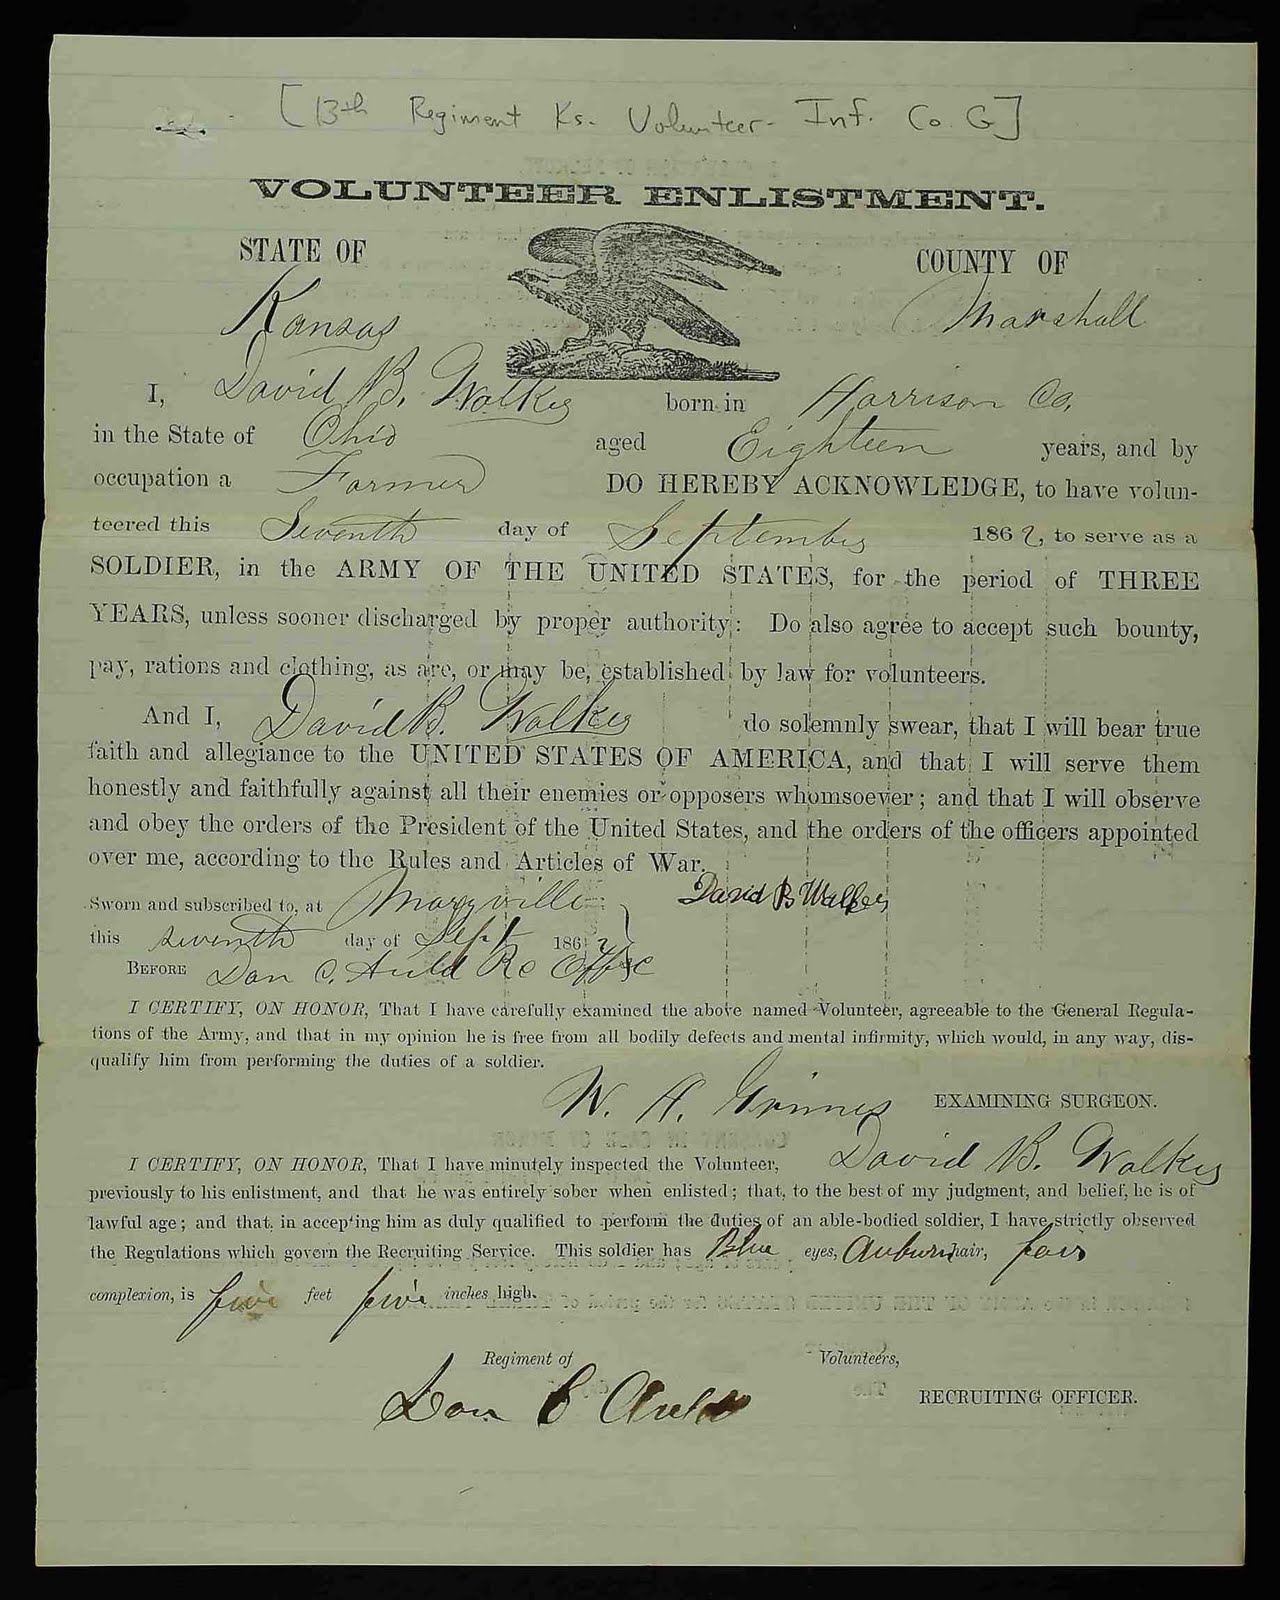 [13th Regiment Ks. Volunteer Inf. Co G]
VOLUNTEER ENLISTMENT.
STATE OF COUNTY OF
Kansas Marshall
I, David B. Walker born in Harrison Co.
in the State of Ohio aged Eighteen years, and by
occupation a Farmer DO HEREBY ACKNOWLEDGE, to have volun-
teered this Seventh day of September 1862, to serve as a
SOLDIER, in the ARMY OF THE UNITED STATES, for the period of THREE
YEARS, unless sooner discharged by proper authority: Do also agree to accept such bounty,
pay, rations and clothing, as are, or may be, established by law for volunteers.
And I, David B. Walker do solemnly swear, that I will bear true
faith and allegiance to the UNITED STATES OF AMERICA, and that I will serve them
honestly and faithfully against all their enemies or opposers whomsoever; and that I will observe
and obey the orders of the President of the United States, and the orders of the officers appointed
over me, according to the Rules and Articles of War.
Sworn and subscribed to, at Marysville David B Walker
this seventh day of Sept 1862
BEFORE Dan C. Auld Rc Offsc
I CERTIFY, ON HONOR, That I have carefully examined the above named Volunteer, agreeable to the General Regula-
tions of the Army, and that in my opinion he is free from all bodily defects and mental infirmity, which would, in any way, dis-
qualify him from performing the duties of a soldier.
W. A. Grimes EXAMINING SURGEON.
I CERTIFY, ON HONOR, That I have minutely inspected the Volunteer, David B. Walker
previously to his enlistment, and that he was entirely sober when enlisted; that, to the best of my judgment, and belief, he is of
lawful age; and that, in accepting him as duly qualified to perform the duties of an able-bodied soldier, I have strictly observed
the Regulations which govern the Recruiting Service. This soldier has Blue eyes, Auburn hair, fair
complexion, is five feet five inches high.
Regiment of Volunteers,
Dan C Auld RECRUITING OFFICER.